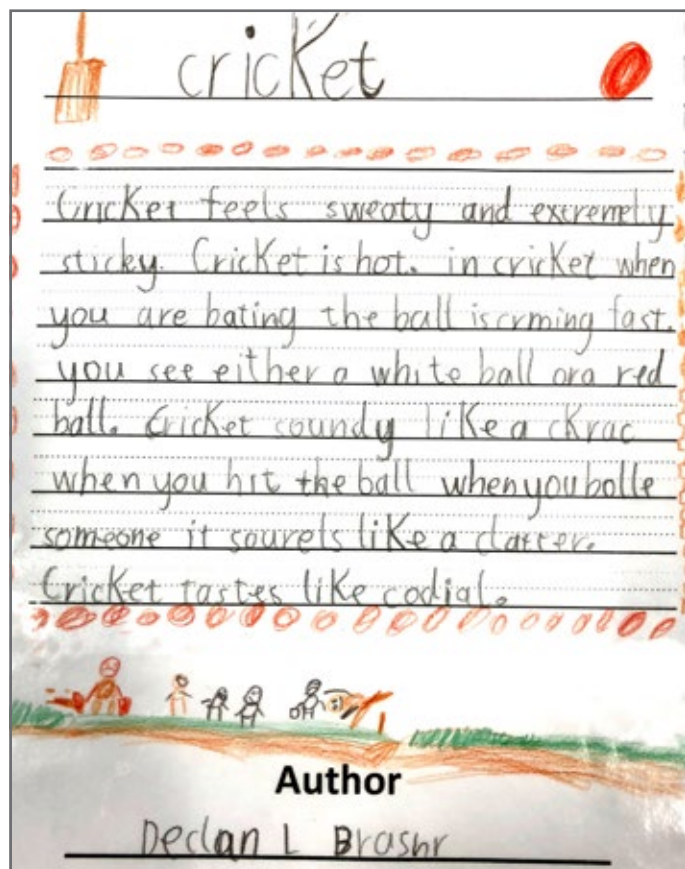 cricket
Cricket feels sweaty and extremely
sticky. Cricket is hot. in cricket when
you are bating the ball is crming fast.
you see either a white ball or a red
ball. Cricket soundy like a ckrac
when you hit the ball when you bolle
someone it sourels like a clatter.
Cricket tastes like codial.
Author
Declan L Brashr